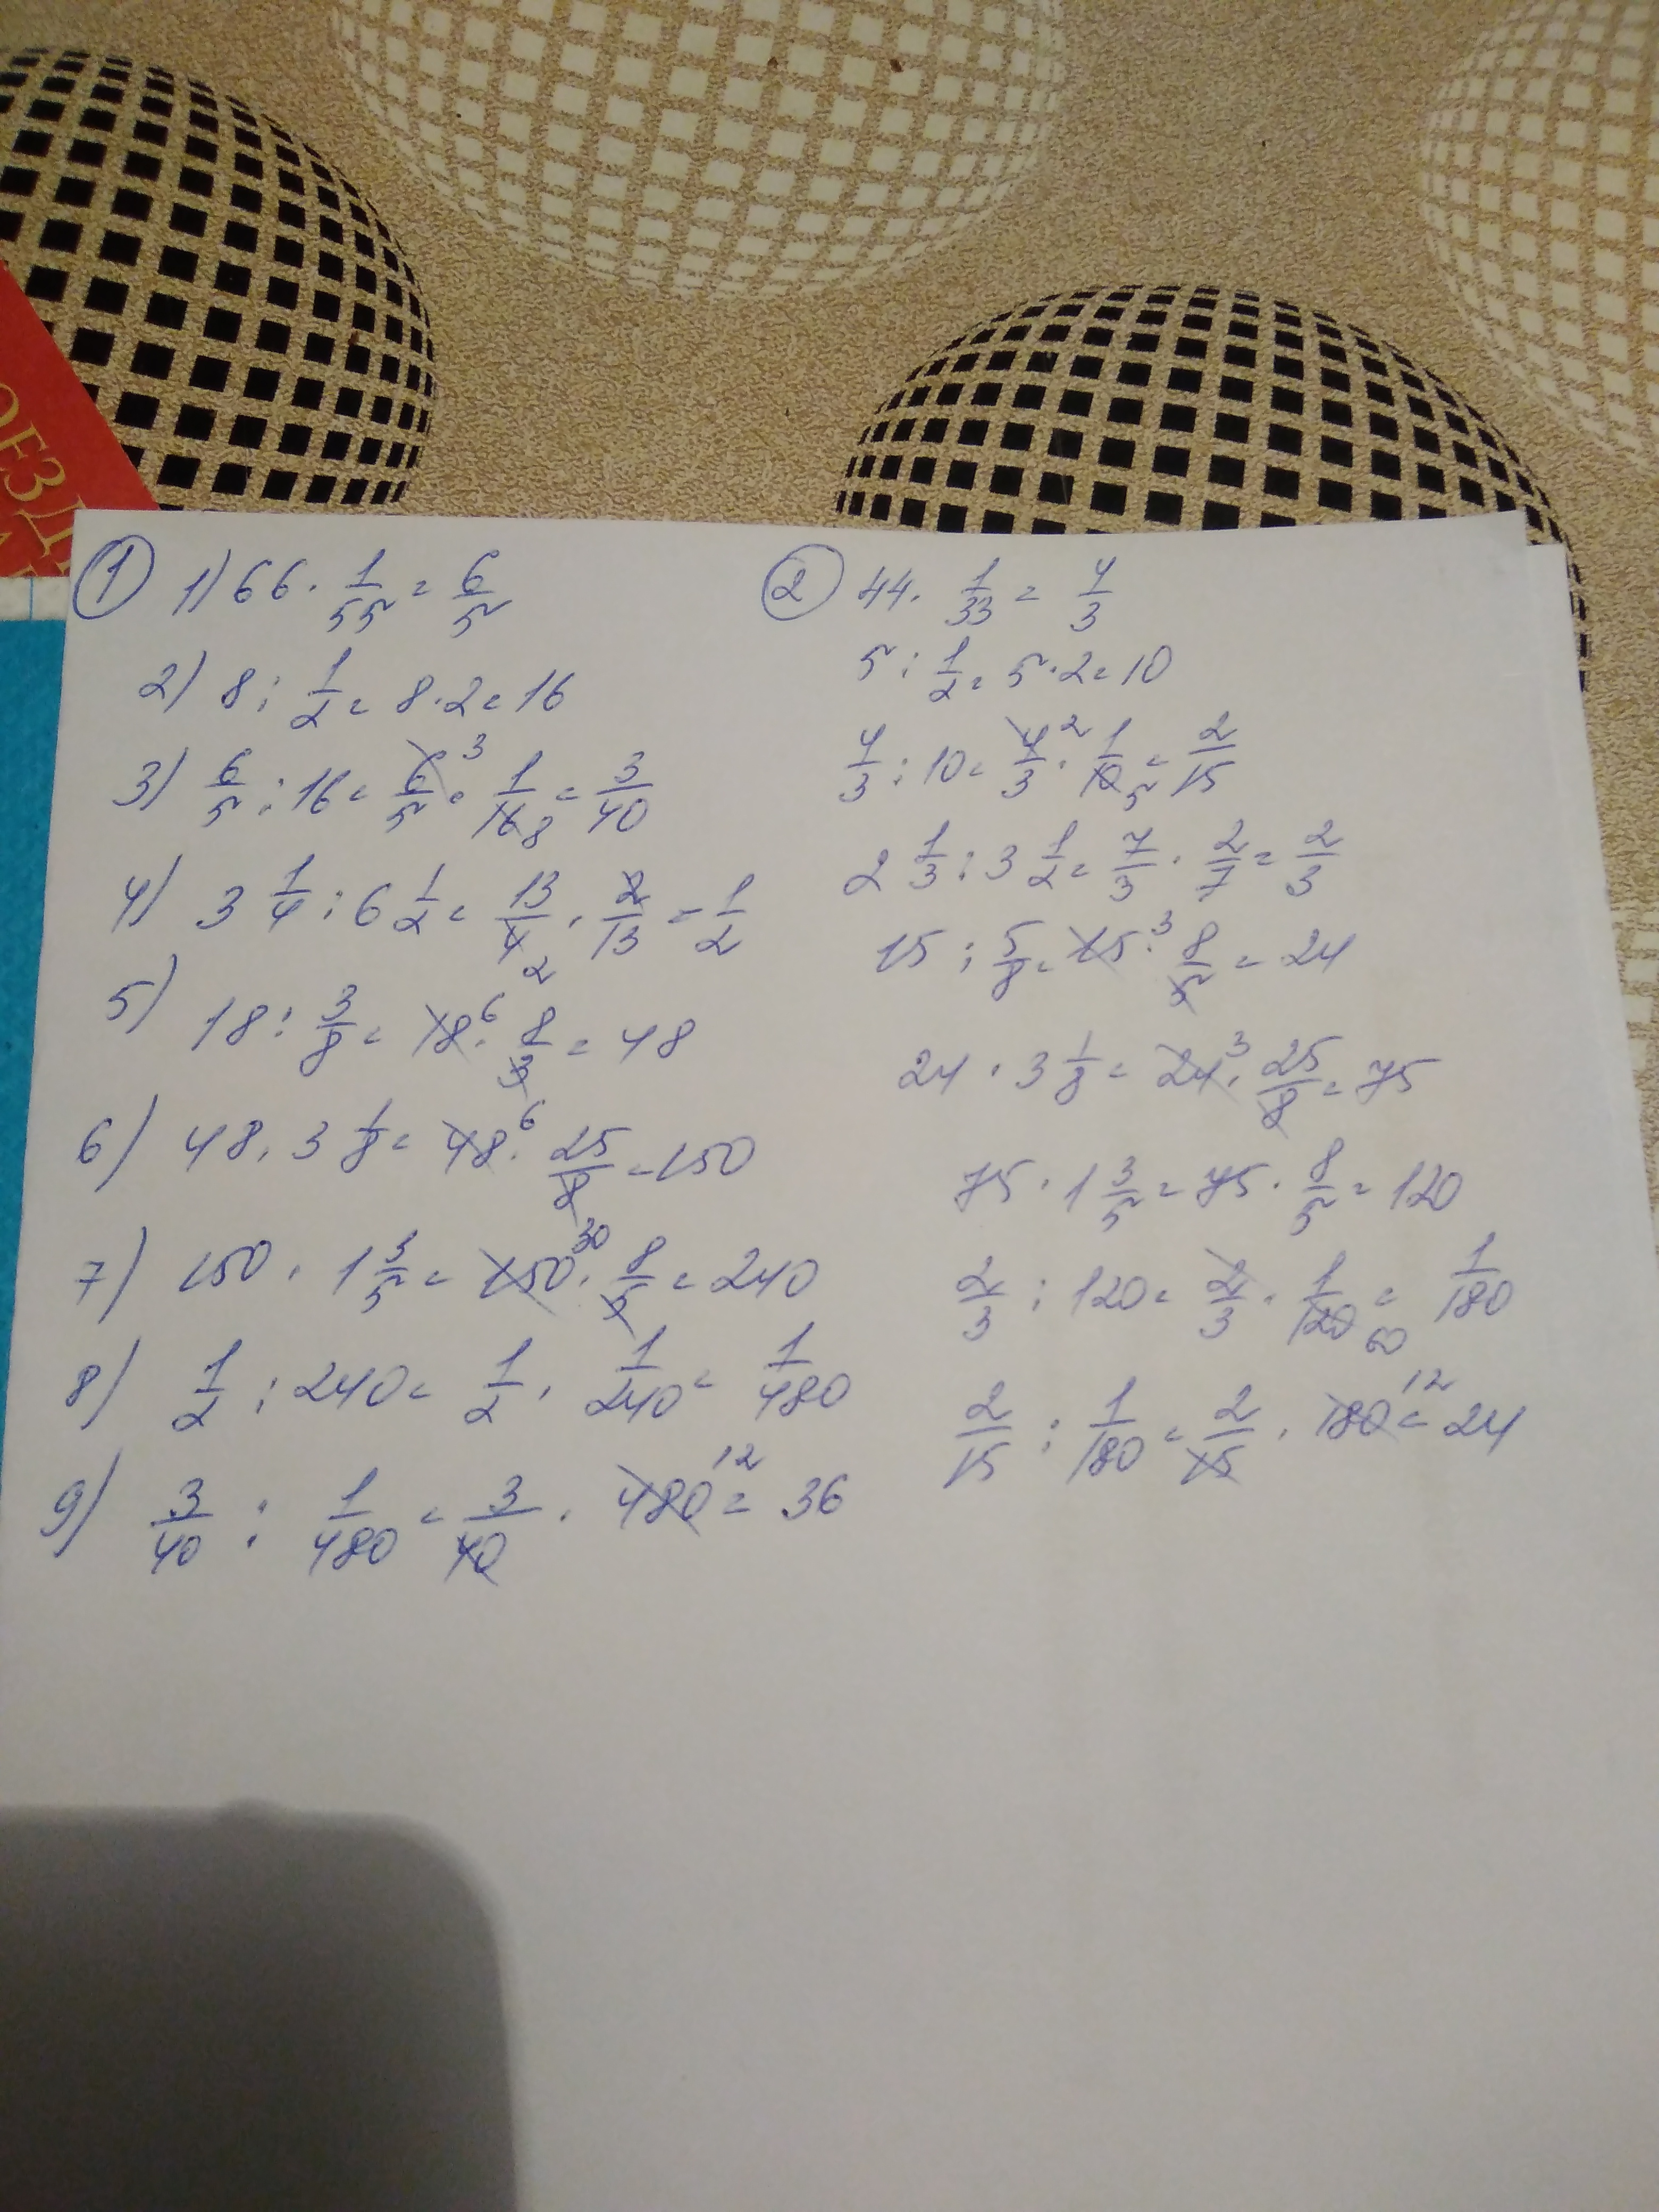 ОЕЗД
① 1) 66 · 1/55 = 6/5
2) 8 : 1/2 = 8 · 2 = 16
3) 6/5 : 16 = 6/5 ³ · 1/16 8 = 3/40
4) 3 1/4 : 6 1/2 = 13/4 2 · 2/13 = 1/2
5) 18 : 3/8 = 18 ⁶ · 8/3 = 48
6) 48 · 3 1/8 = 48 ⁶ · 25/8 = 150
7) 150 · 1 3/5 = 150 ³⁰ · 8/5 = 240
8) 1/2 : 240 = 1/2 · 1/240 = 1/480
9) 3/40 : 1/480 = 3/40 · 480 ¹² = 36
② 44 · 1/33 = 4/3
5 : 1/2 = 5 · 2 = 10
4/3 : 10 = 4/3 ² · 1/10 5 = 2/15
2 1/3 : 3 1/2 = 7/3 · 2/7 = 2/3
15 : 5/8 = 15 ³ · 8/5 = 24
24 · 3 1/8 = 24 ³ · 25/8 = 75
75 · 1 3/5 = 75 · 8/5 = 120
2/3 : 120 = 2/3 · 1/120 60 = 1/180
2/15 : 1/180 = 2/15 · 180 ¹² = 24